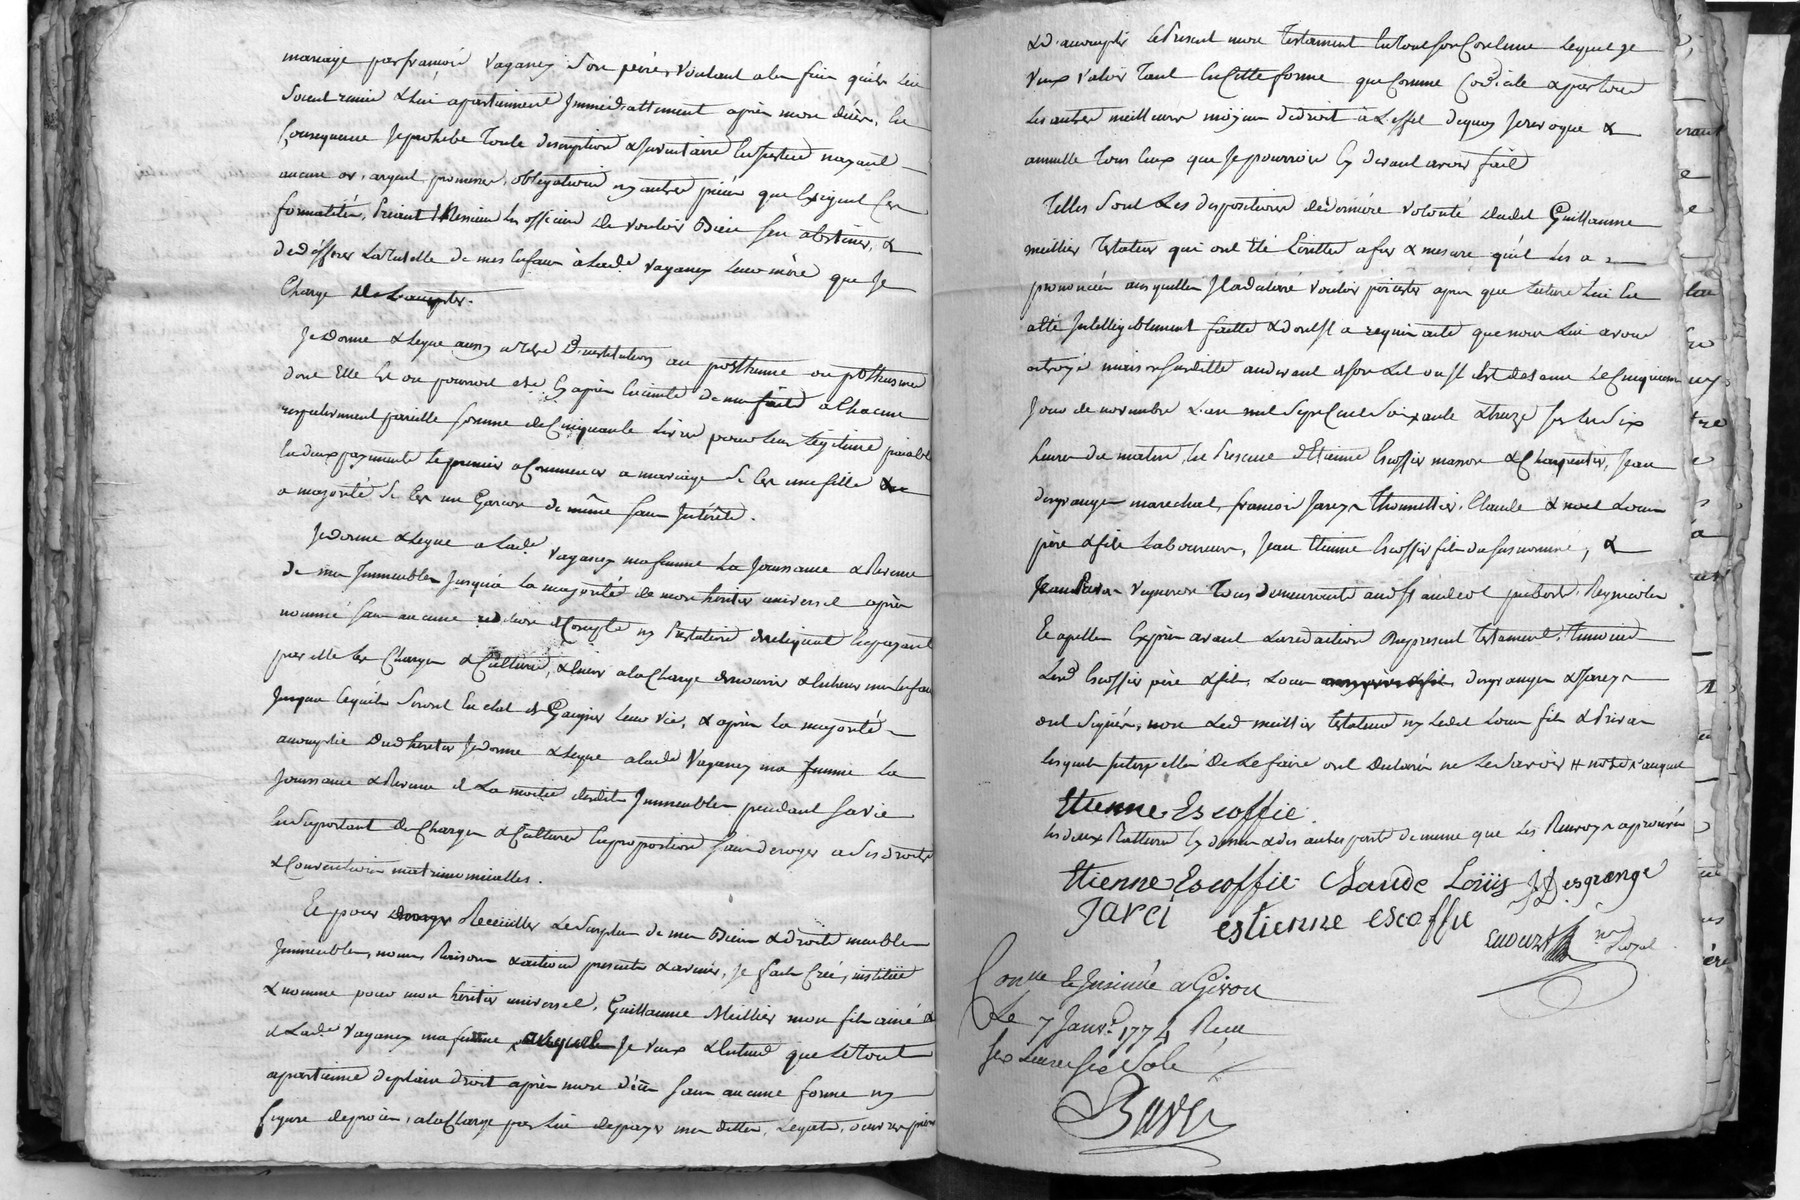 mariage par françois Vaganey son père, voulant a la fin quils lui
soient remis & lui apartiennent Immediattement après mon décès, En
Consequance Je prohibe toute description & Inventaire nayant
aucun or, argent, promesses, obligations ny autres pièces que Exigent Ces
formalités, Priant Messieurs les officiers de vouloir Bien sen abstenir, &
de deférer La tutelle de mes Enfans à Lade Vaganey leur mère que Je
Charge de L'accepter.
Je donne & Legue aussy a titre D'institution au posthume ou posthumes
dont Elle Est ou pourroit être Cy après Enceinte de mon fait a Chacun
respectivement pareille somme de Cinquante Livres pour leur légitime païable
En deux payements Le premier a Commencer a mariage si Cest une fille &
a majorité si Cest un Garçon de même sans Intérêts.
Je donne & Legue a Lade Vaganey ma femme La Jouissance & Revenu
de mes Immeubles Jusqu'à La majorité de mon héritier universel après
nommé sans aucune reddition de Compte ny Prestation de reliquat En payant
par elle les Charges & Culture, & Encore a la Charge de nourrir & Entretenir mes Enfans
Jusqua Cequils Seront En etat de Gaigner Leur vie, & après La majorité
accomplie Dud héritier Je donne & Legue a lade Vaganey ma femme La
Jouissance & Revenu de La moitié desdits Immeubles pendant Sa vie
En Suportant les Charges & Cultures En proportion sans deroger a ses droits
& Conventions matrimonialles.
Et pour Receüiller Le Surplus de mes Biens & droits meubles
Immeubles, noms, Raisons & actions presents & avenir, Je fais Créé, institüe
& nomme pour mon héritier universel, Guillaume Meillier mon fils ainé &
de Lade Vaganey ma femme, Je veux & Entend que Le tout
apartienne de plain droit après mon décès sans aucune forme ny
figure de procès, a la Charge par lui de payer mes dettes, Legats, oeuvres pies
& d'accomplir Le Present mon testament En tout son Contenu Lequel Je
Veux Valoir Tant En Cette forme que Comme Codicile & par tous
Les autres meilleurs moyens de droit à L'effet de quoy Je revoque &
annulle tous Ceux que Je pourrois Cy devant avoir fait
Telles Sont Les dispositions de derniére volonté dudit Guillaume
meillier testateur qui ont été Ecrittes a fur & mesure qu'il Les a
prononcées ausquelles Il a déclaré vouloir persister après que lecture Lui En
a été Intelligiblement faitte & dont Il a requis acte que nous Lui avons
octroyé maison susditte audevant de son Lit ou Il Est detenu Le Cinquieme
Jour de novembre L'an mil Sept Cent Soixante & treize sur les Six
heures du matin, En Presence d'Etienne Escoffier masson & Charpentier, Jean
desgranges marechal, françois Jarcy, Claude & noel Louis
père & fils Laboureurs, Jean Etienne Escoffier fils du susnommé, &
Jean Privas Vigneron Tous demeurants audit
Et apellés Exprès avant La redaction du present testament, temoins
Lesd Escoffier père & fils, Louis desgranges & Jarcy
ont signés, non Led meillier testateur ny Ledit Louis fils & Privas
Lesquels Interpellés De Le faire ont Declarés ne Le Savoir
Etienne Escoffie.
Les deux Ratures Cy dessus & des autres parts de meme que Les Renvoys aprouvés
Etienne Escoffie. Claude Loüis J Desgrange
Jarci estienne escoffie
nore Royal
Conlle & Insinué a Givors
Le 7 Janvr 1774 Reçu